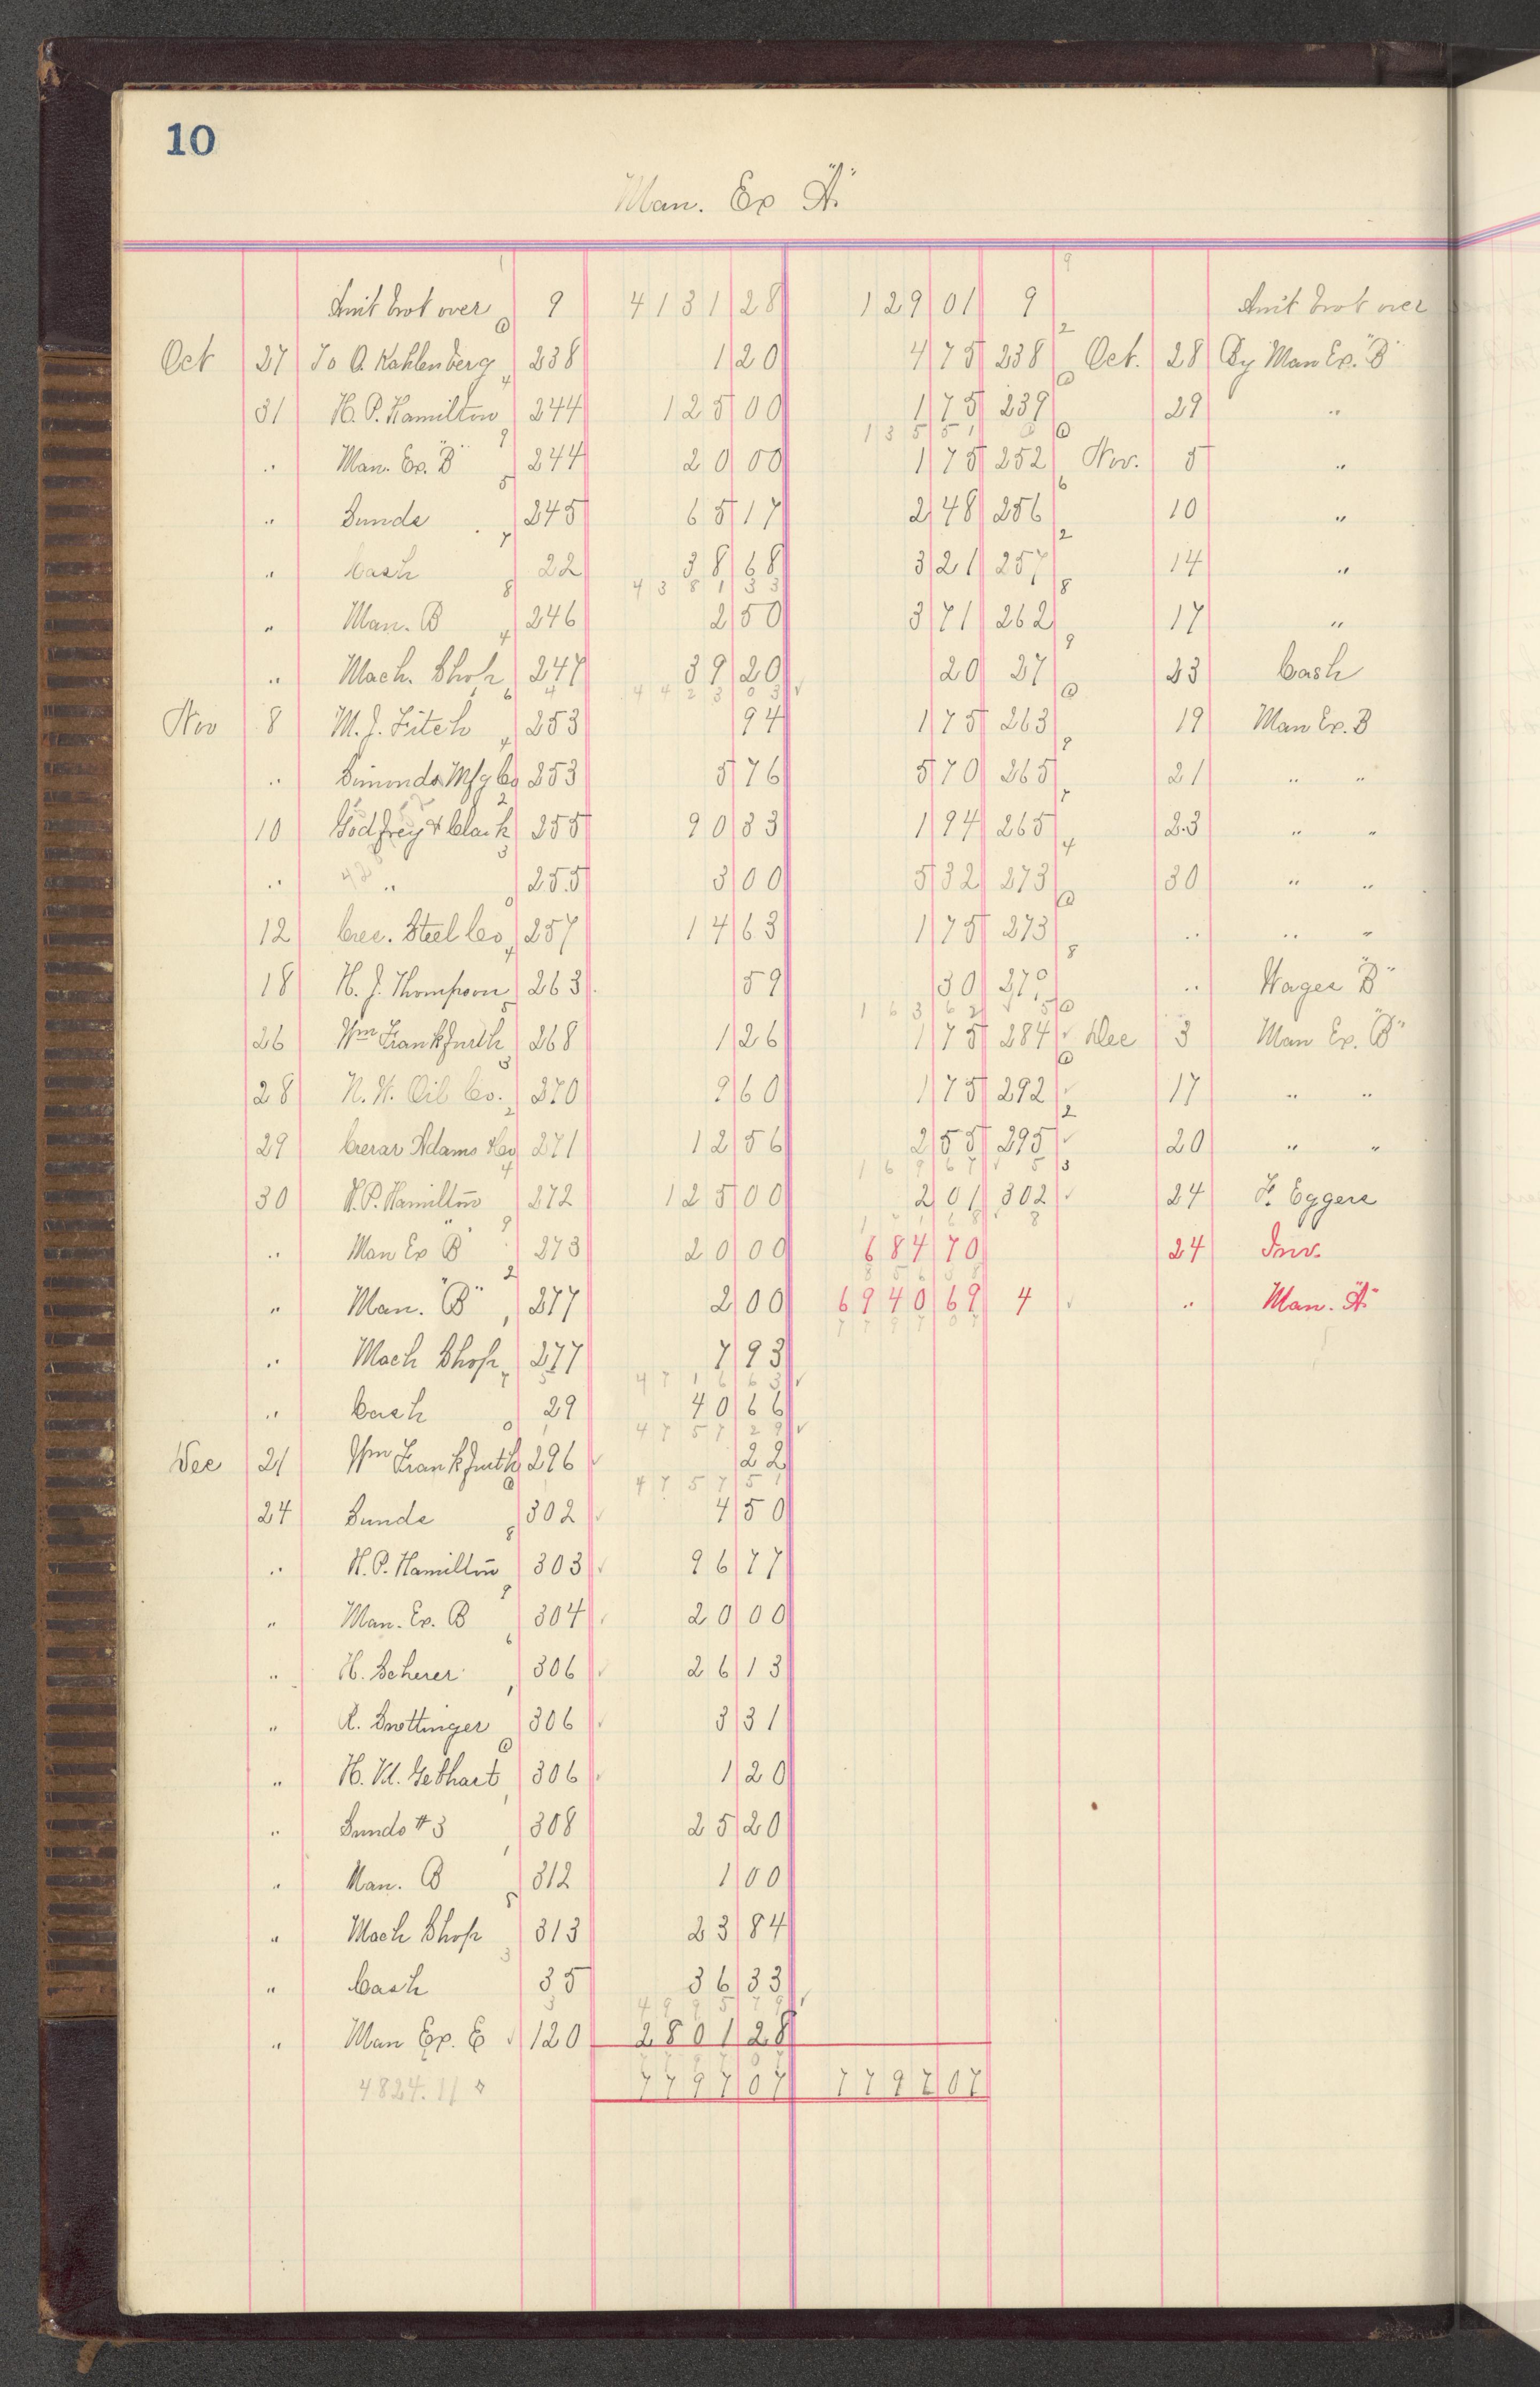 10
Man. Ex "A"
Amt brot over 9 4131 28 129 01 9 Amt brot over
Oct 27 To O. Kahlenberg 238 1 20 4 75 238 Oct. 28 By Man Ex. "B"
31 H. P. Hamilton 244 125 00 1 75 239 29 "
135 51
" Man. Ex. "B" 244 20 00 1 75 252 Nov. 5 "
" Sunds 245 65 17 2 48 256 10 "
" Cash 22 38 68 3 21 257 14 "
4381 33
" Man. B 246 2 50 3 71 262 17 "
" Mach. Shop 247 39 20 20 27 23 Cash
4423 03
Nov 8 M. J. Fitch 253 94 1 75 263 19 Man Ex. B
" Simonds Mfg Co 253 5 76 5 70 265 21 " "
10 Godfrey & Clark 255 90 83 1 94 265 23 " "
" " 255 3 00 5 32 273 30 " "
12 Cres. Steel Co 257 14 63 1 75 273 " " "
18 H. J. Thompson 263 59 30 270 " Wages "B"
163 62
26 Wm Frankfurth 268 1 26 1 75 284 Dec 3 Man Ex. "B"
28 N. W. Oil Co. 270 9 60 1 75 292 17 " "
29 Crerar Adams & Co 271 12 56 2 55 295 20 " "
169 67
30 H. P. Hamilton 272 125 00 2 01 302 24 F. Eggers
171 68
" Man Ex "B" 273 20 00 684 70 24 Inv.
856 38
" Man. "B" 277 2 00 6940 69 4 " Man. "A"
7797 07
" Mach Shop 277 7 93
4716 63
" Cash 29 40 66
4757 29
Dec 21 Wm Frankfurth 296 22
4757 51
24 Sunds 302 4 50
" H. P. Hamilton 303 96 77
" Man. Ex. B 304 20 00
" H. Scherer 306 26 13
" 306 3 31
" H. Gebhart 306 1 20
" Sunds #3 308 25 20
" Man. B 312 1 00
" Mach Shop 313 23 84
" Cash 35 36 33
4995 79
" Man Exp. E 120 2801 28
7797 07 7797 07
4824.11